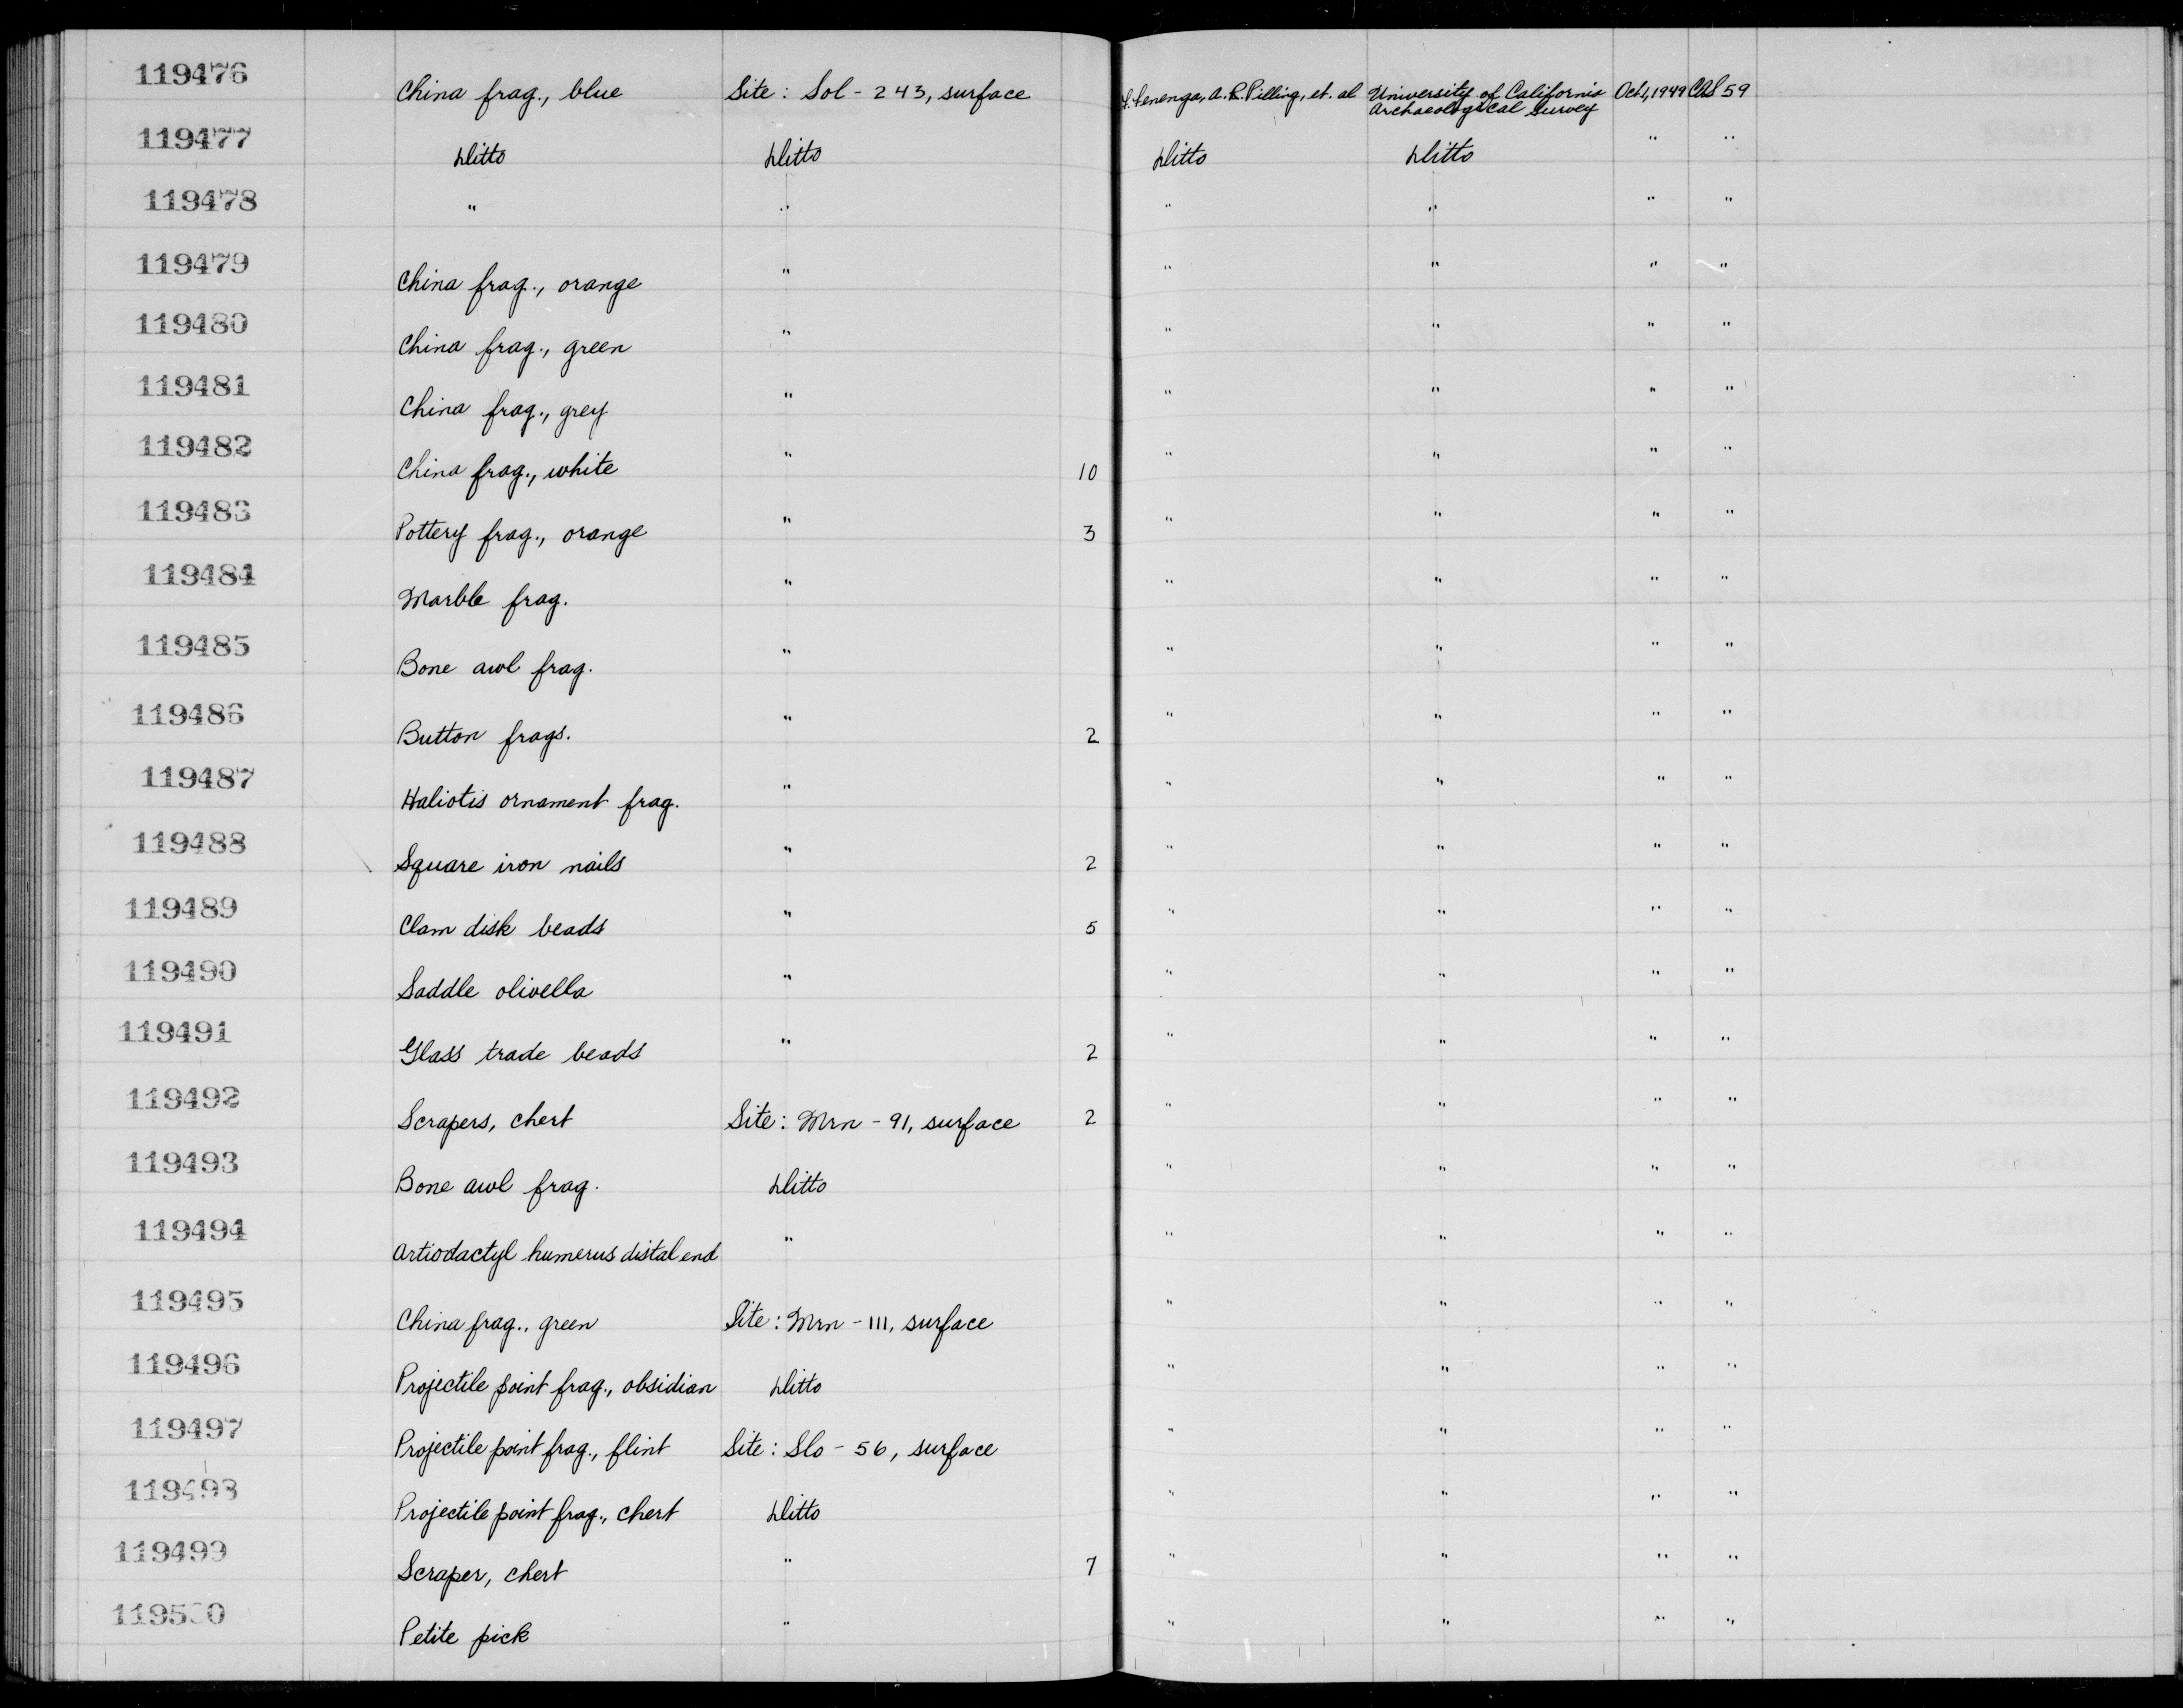 119476 China frag., blue Site: Sol - 243, surface F. Fenenga, A.R. Pilling, et. al University of California Archaeological Survey Oct, 1949 CAS 59
119477 Ditto Ditto Ditto Ditto " "
119478 " " " " " "
119479 China frag., orange " " " " "
119480 China frag., green " " " " "
119481 China frag., grey " " " " "
119482 China frag., white " 10 " " " "
119483 Pottery frag., orange " 3 " " " "
119484 Marble frag. " " " " "
119485 Bone awl frag. " " " " "
119486 Button frags. " 2 " " " "
119487 Haliotis ornament frag. " " " " "
119488 Square iron nails " 2 " " " "
119489 Clam disk beads " 5 " " " "
119490 Saddle olivella " " " " "
119491 Glass trade beads " 2 " " " "
119492 Scrapers, chert Site: Mrn - 91, surface 2 " " " "
119493 Bone awl frag. Ditto " " " "
119494 Artiodactyl humerus distal end " " " " "
119495 China frag., green Site: Mrn - 111, surface " " " "
119496 Projectile point frag., obsidian Ditto " " " "
119497 Projectile point frag., flint Site: Slo - 56, surface " " " "
119498 Projectile point frag., chert Ditto " " " "
119499 Scraper, chert " 7 " " " "
119500 Petite pick " " " " "